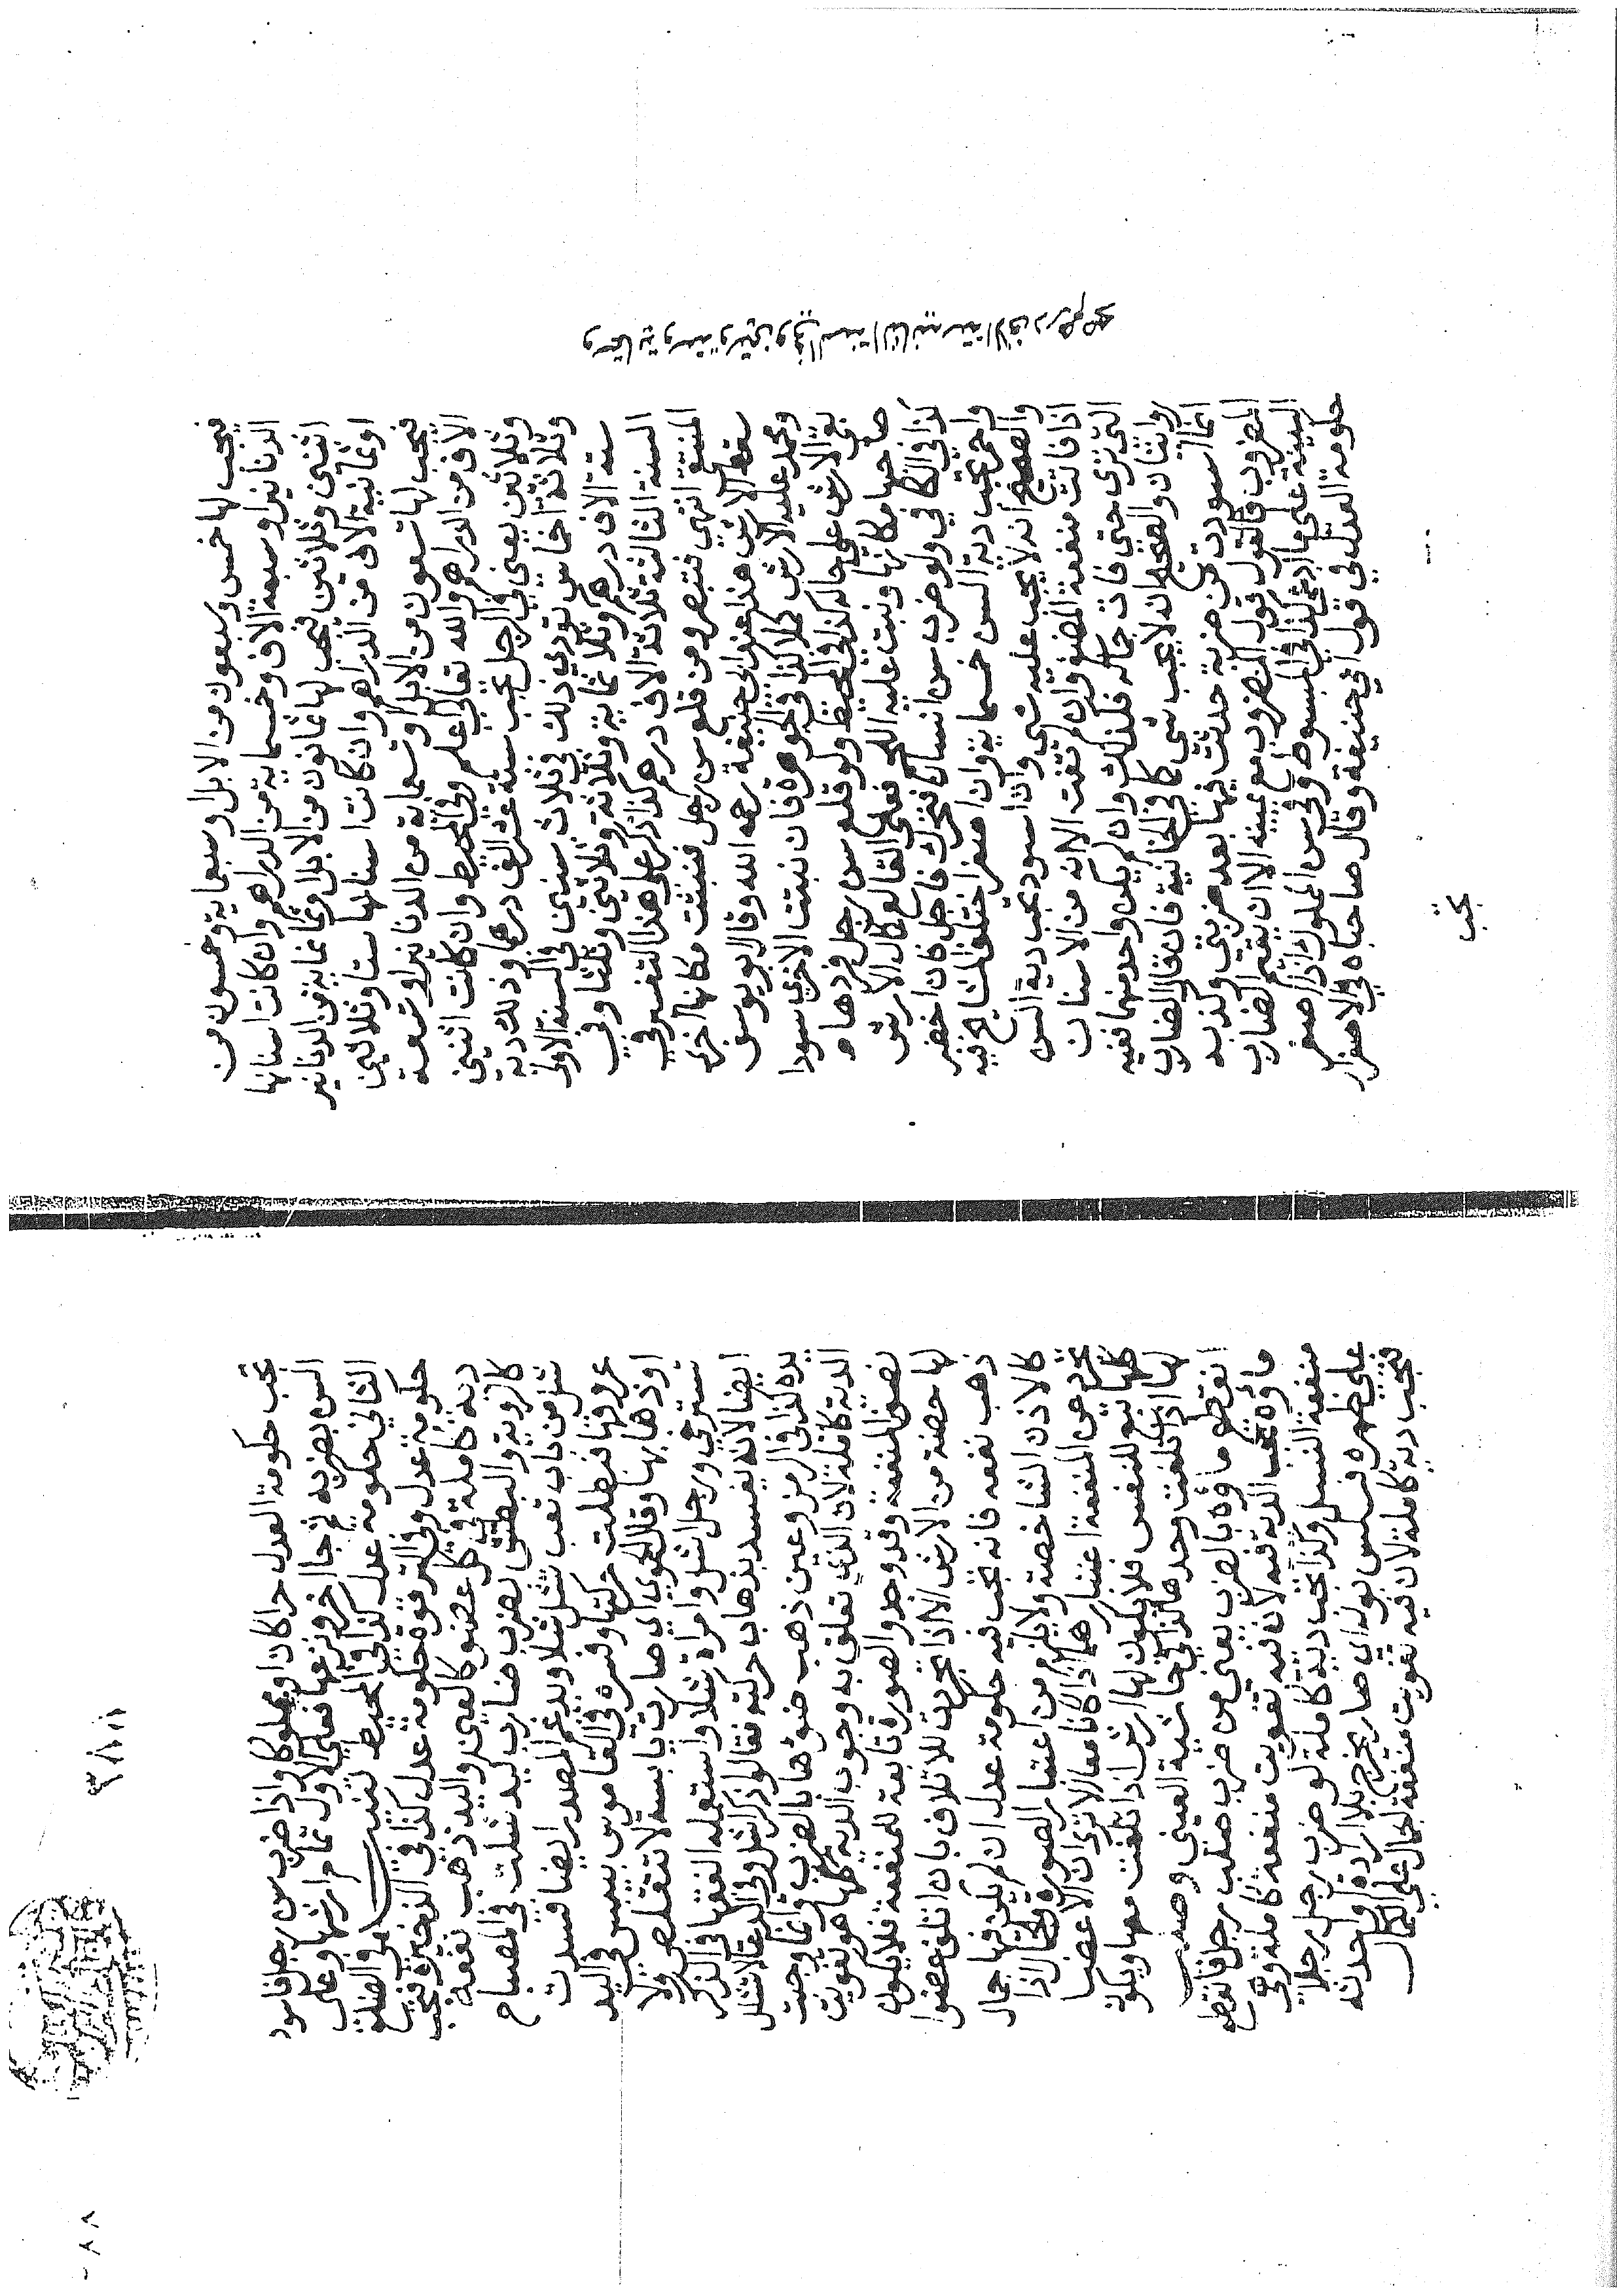 فيجب لها خمس وسبعون من الابل وسبعماية وخمسون من
الدنانير او سبعة الاف وخمسماية من الدراهم وان كانت اسنانها
اثنين وثلاثين فيجب لها ثمانون من الابل وثمانماية من الدنانير
او ثمانية الاف من الدراهم وان كانت اسنانها ستا وثلاثين
فيجب لها تسعون من الابل او تسعماية من الدنانير او تسعة
الاف من الدراهم والله تعالى اعلم وفي المحيط وان كانت اثنين
وثلاثين يعني في الرجل تجب ستة عشر الف درهم وذلك دية
وثلاثة اخماس تودي ذلك في ثلاث سنين في السنة الاولى
ستة الاف درهم وثلاثماية وثلاثة وثلاثين وثلثا وفي
السنة الثالثة ثلاثة الاف درهم كذا ذكر على هذا التفسير في
المنتقى انتهى فتبصر ومن قلع سن رجل فنبتت مكانها اخرى
سقط الارش هذا عند ابي حنيفة رحمه الله وقال ابو يوسف
ومحمد عليه الارش كاملا كذا في الجوهرة فان نبتت الاخرى سودا
بقي الارش على حاله كذا في المحيط ولو قلع سن رجل فردها
صاحبها مكانها ونبت عليه اللحم فعلى القالع كمال الارش
كذا في الكافي ولو ضرب سن انسان فتحرك فاجل فان اخضر
واحمر تجب دية السن خمسماية وان اصفر اختلف المشايخ فيه
والصحيح انه لا يجب عليه شي وان اسود يجب دية السن
اذا فاتت منفعة المضغ وان لم تفت الا انه من الاسنان
التي ترى حتى فات جماله فكذلك وان لم يكن واحد منهما ففيه
روايتان والصحيح انه لا يجب شي كما في الخانية فان قال الضارب
انما اسودت من ضربة حدثت فيها بعد ضربتي وكذبه
المضروب فالقول قول المضروب مع يمينه الا ان يقيم الضارب
البينة على ما ادعى كذا في المبسوط وفي سن المملوك اذا اصفر
حكومة العدل في قول ابي حنيفة وقال صاحباه في الاصفرار
تجب
وستماية وستة وستين وفي السنة الثانية ستة الاف درهم صح
تجب حكومة العدل حرا كان او مملوكا واذا ضرب سن رجل فاسود
السن بضربه ثم جا اخر ونزعها فعلى الاول تمام ارشها وعلى
الثاني حكومة عدل كذا في المحيط وفي الضلع
حكومة عدل وفي الترقوة حكومة عدل كذا في الذخيرة فتجب
دية كاملة في كل عضو كالعين واليد ذهب نفعه
كالروية والبطش بضرب ضارب ليد شلت في المصباح
شل من باب تعب تشل شللا ويدغم المصدر ايضا فسدت
عروقها فبطلت حركتها وفسره في القاموس بيبس في اليد
او ذهابها وقال الحموي اي صارت يابسة لا تتقلص ولا
تسترخي ورجل اشل وامراة شلا واستعمله الفقها في الذكر
ايضا لانه يفسد بذهاب حركته فقالوا ذكر اشل وفي الدعا لا تشلل
يده كذا في الرمز وعين ذهب ضوها بالضرب وانما وجبت
الدية كاملة لان الذي تعلق به وجوب الدية كلها هو تفويت
لها حصة من الارش الا اذا تجردت للاتلاف بان اتلف عضوا
ذهب نفعه فانه تجب فيه حكومة عدل ان لم يكن فيها جمال
كالاذن الشاخصة ولا يلزم من اعتبار الصورة والجمال اذا
تجرد عن المنفعة اعتبارهما اذا كانا معها الا ترى ان الاعضا
كلها تبع للنفس فلا يكون لها ارش اذا تلفت معها ويكون
لها اذا تلفت وحدها كذا في حاشية العيني وصلب
انقطع ماوه بالضرب يعني من ضرب صلب رجل فانقطع
ماوه تجب الدية فيه لانه فيه تفويت منفعة كاملة وهي
منفعة النسل وكذا تجب دية كاملة لو ضرب رجل رجلا
على ظهره فسلس بوله اي صار يخرج بلا ارادة او احدثه
فتجب دية كاملة لان فيه تفويت منفعة الجمال على الكمال